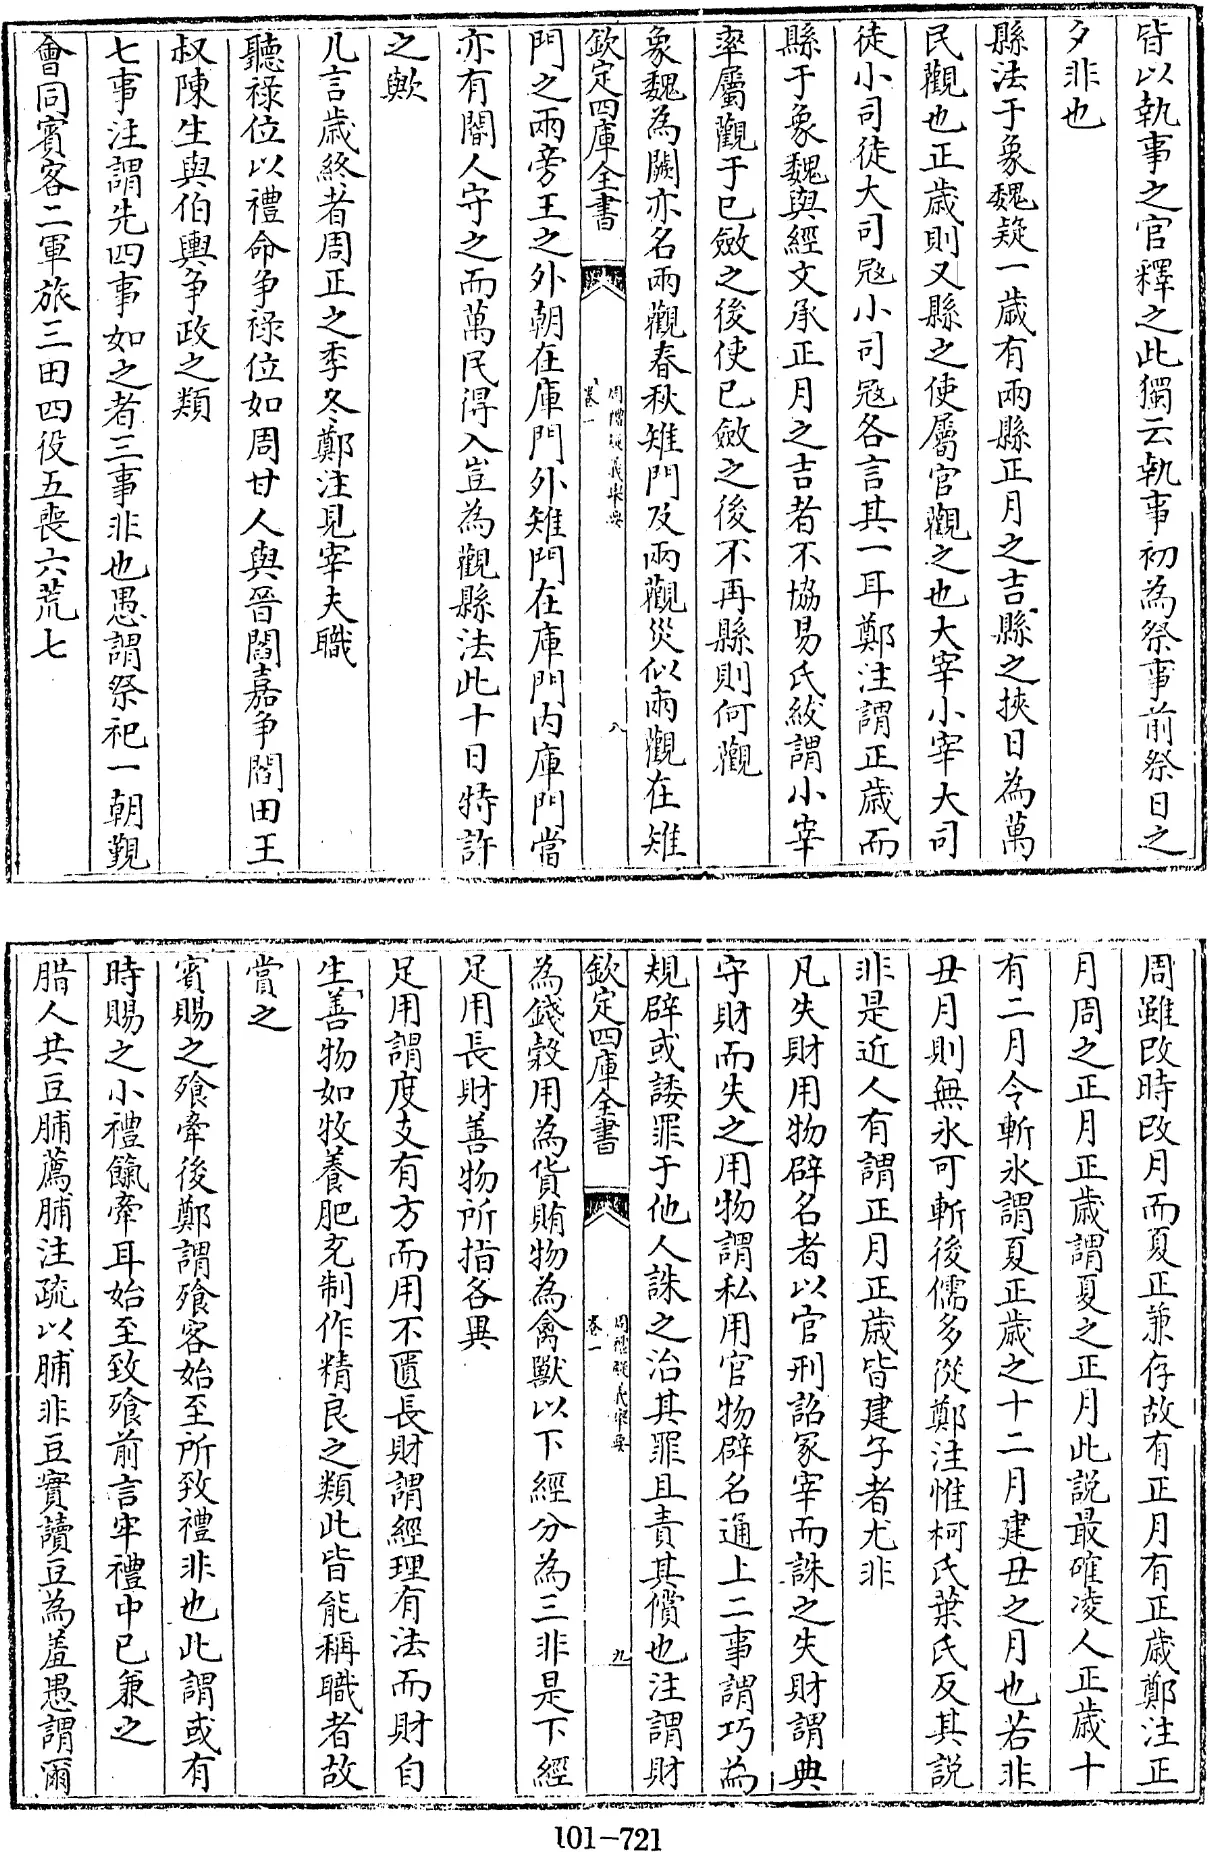 皆以執事之官釋之此獨云執事初為祭事前祭日之
夕非也
縣法于象魏疑一歲有兩縣正月之吉縣之挾日為萬
民觀也正歲則又縣之使屬官觀之也大宰小宰大司
徒小司徒大司冦小司冦各言其一耳鄭注謂正歲而
縣于象魏與經文承正月之吉者不協易氏紱謂小宰
率屬觀于已斂之後使已斂之後不再縣則何觀
象魏為闕亦名兩觀春秋雉門及兩觀災似兩觀在雉
欽定四庫全書
周禮疑義舉要
卷一
八
門之兩旁王之外朝在庫門外雉門在庫門内庫門當
亦有閽人守之而萬民得入豈為觀縣法此十日特許
之歟
凡言歲終者周正之季冬鄭注見宰夫職
聽祿位以禮命爭祿位如周甘人與晉閻嘉爭閻田王
叔陳生與伯輿爭政之類
七事注謂先四事如之者三事非也愚謂祭祀一朝覲
會同賓客二軍旅三田四役五喪六荒七
周雖改時改月而夏正兼存故有正月有正歲鄭注正
月周之正月正歲謂夏之正月此説最確凌人正歲十
有二月令斬氷謂夏正歲之十二月建丑之月也若非
丑月則無氷可斬後儒多從鄭注惟柯氏葉氏反其説
非是近人有謂正月正歲皆建子者尤非
凡失財用物辟名者以官刑詔冢宰而誅之失財謂典
守財而失之用物謂私用官物辟名通上二事謂巧為
規辟或諉罪于他人誅之治其罪且責其償也注謂財
欽定四庫全書
周禮疑義舉要
卷一
九
為錢穀用為貨賄物為禽獸以下經分為三非是下經
足用長財善物所指各異
足用謂度支有方而用不匱長財謂經理有法而財自
生善物如牧養肥充制作精良之類此皆能稱職者故
賞之
賓賜之飱牽後鄭謂飱客始至所致禮非也此謂或有
時賜之小禮餼牽耳始至致飱前言牢禮中已兼之
腊人共豆脯薦脯注疏以脯非豆實讀豆為羞愚謂爾
101-721